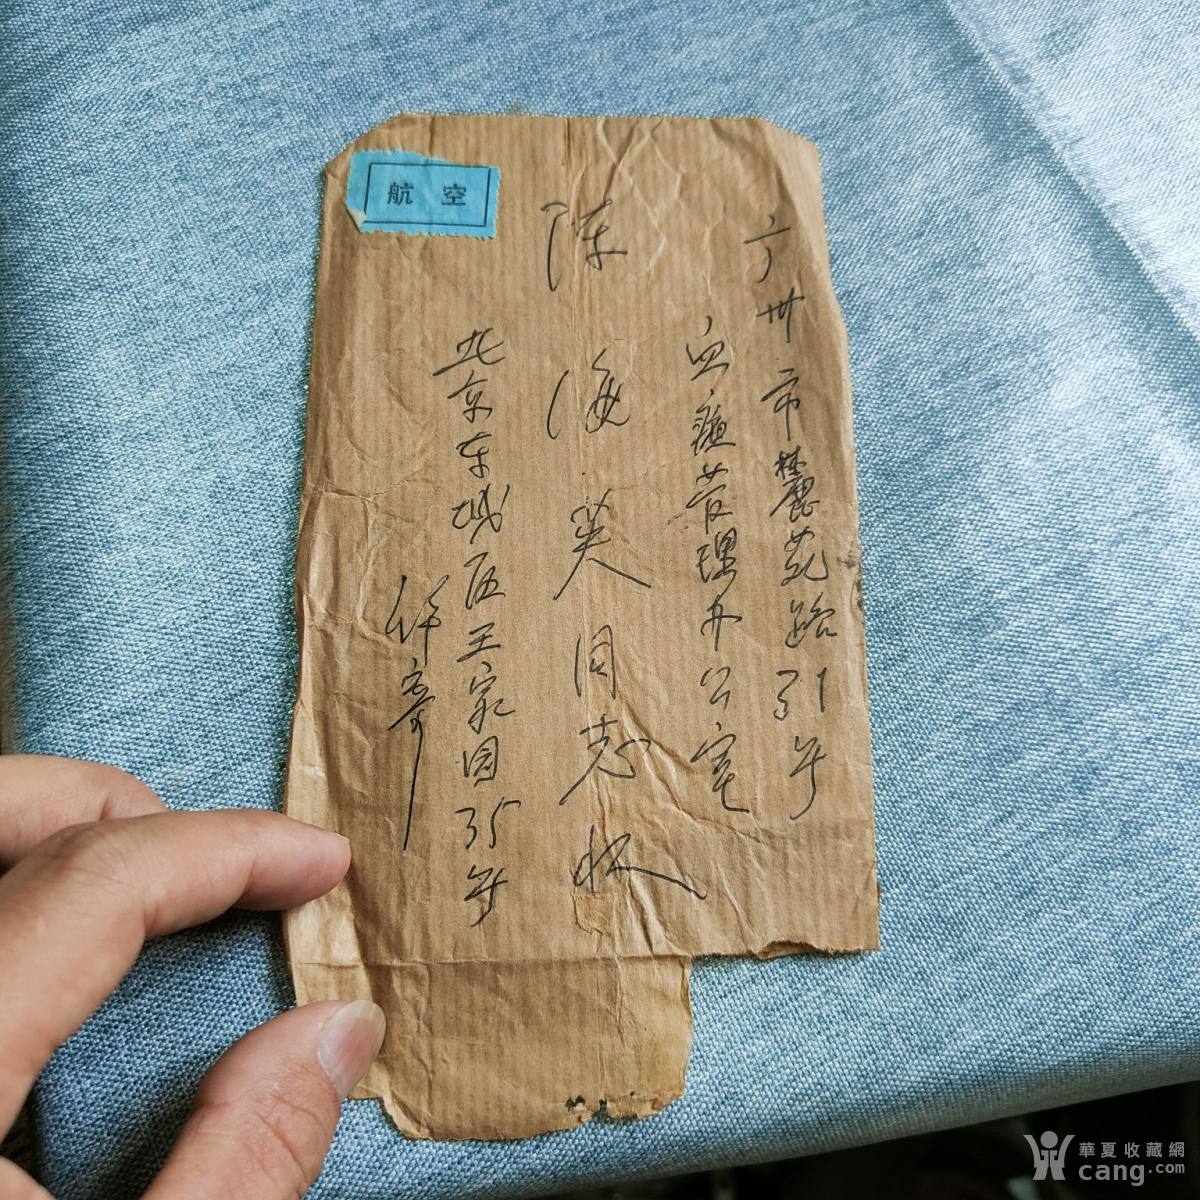 航 空
广州市麓苑路31号
血液管理办公室
陈海英同志收
北京东城区王家园35号
许寄
華夏收藏網
cang.com